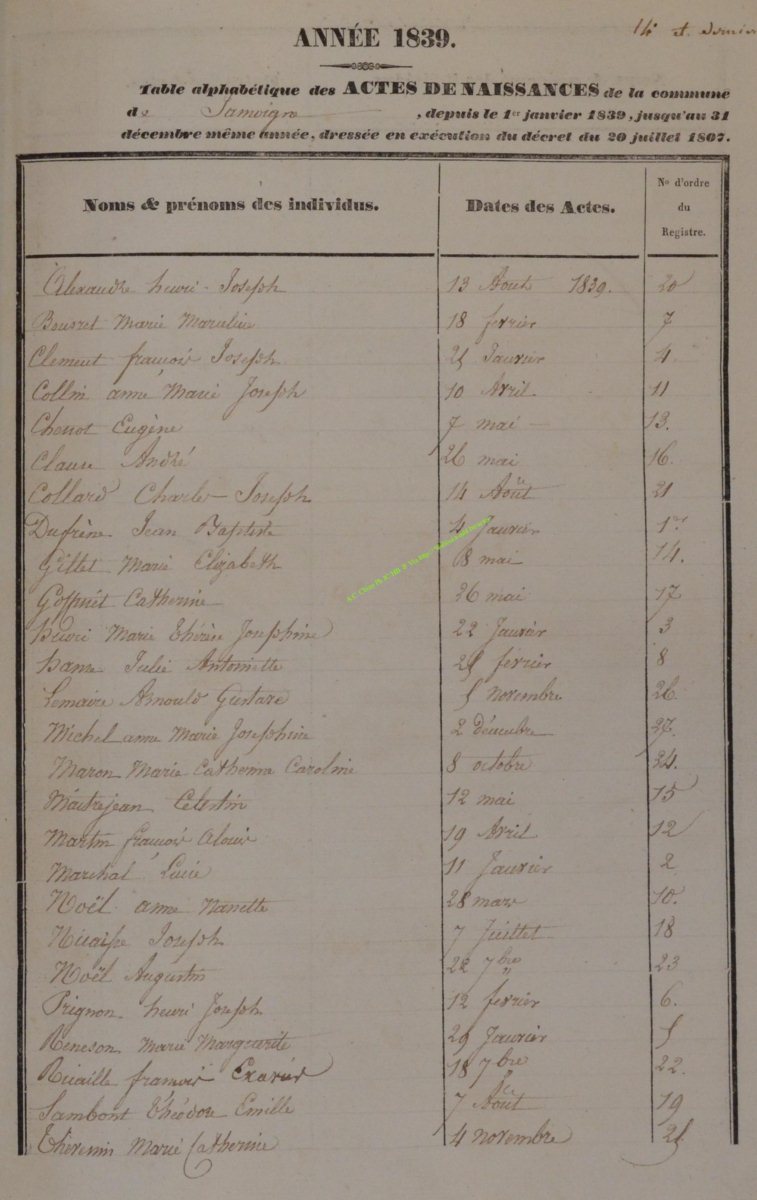 14e et dernier
ANNÉE 1839.
Table alphabétique des ACTES DE NAISSANCES de la commune
de Jamoigne, depuis le 1er janvier 1839, jusqu'au 31
décembre même année, dressée en exécution du décret du 20 juillet 1807.
Noms & prénoms des individus. Dates des Actes. No d'ordre du Registre.
Alexandre henri Joseph 13 Aout 1839. 20
Marie 18 fevrier 7
Clement françois Joseph 25 Janvier 4.
Collin anne Marie Joseph 10 Avril. 11
Chenot Eugène 7 mai 13.
Clause André 26 mai 16.
Collard Charles Joseph 14 Août 21
Dufrène Jean Baptiste 4 Janvier 1er
Gillet Marie Elizabeth 8 mai 14.
Goffinet Catherine 26 mai 17
henri Marie thérèse Josephine 22 Janvier 3
Julie Antoinette 25 fevrier 8
Lemaire Arnould Gustave 5 novembre 26
Michel anne Marie Josephine 2 Décembre 27.
Maron Marie Catherine Caroline 8 octobre 24.
Maitrejean Celestin 12 mai 15
Martin françois Alouis 19 Avril 12
Marchal Lucie 11 Janvier 2
Noël anne Nanette 28 mars 10.
Nicaise Joseph 7 Juillet 18
Noël Augustin 22 7bre 23
Prignon henri Joseph 12 fevrier 6.
Reneson Marie Marguerite 29 Janvier 5
françois Exavier 18 7bre 22.
Théodore Emille 7 Août 19
Thérémin Marie Catherine 4 novembre 25